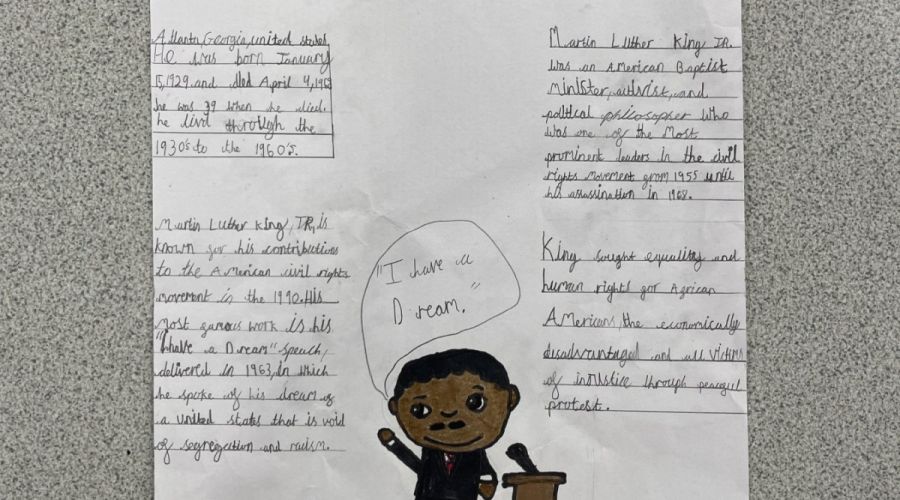 Atlanta, Georgia, united states
He was born January
15, 1929 and died April 4, 1968
he was 39 when he died.
he livd through the
1930s to the 1960's.
Martin Luther King, JR, is
known for his contributions
to the American civil rights
movement in the 1990. His
most famous work is his
"I have a Dream" speech,
delivered in 1963, in which
he spoke of his dream of
a united states that is void
of segregation and racism.
"I have a
Dream."
Martin Luther King JR.
was an American Baptist
minister, activist, and
political philosopher who
was one of the most
prominent leaders in the civil
rights movement from 1955 until
his assassination in 1968.
King sought equality and
human rights for African
Americans, the economically
disadvantaged and all victims
of injustice through peaceful
protest.